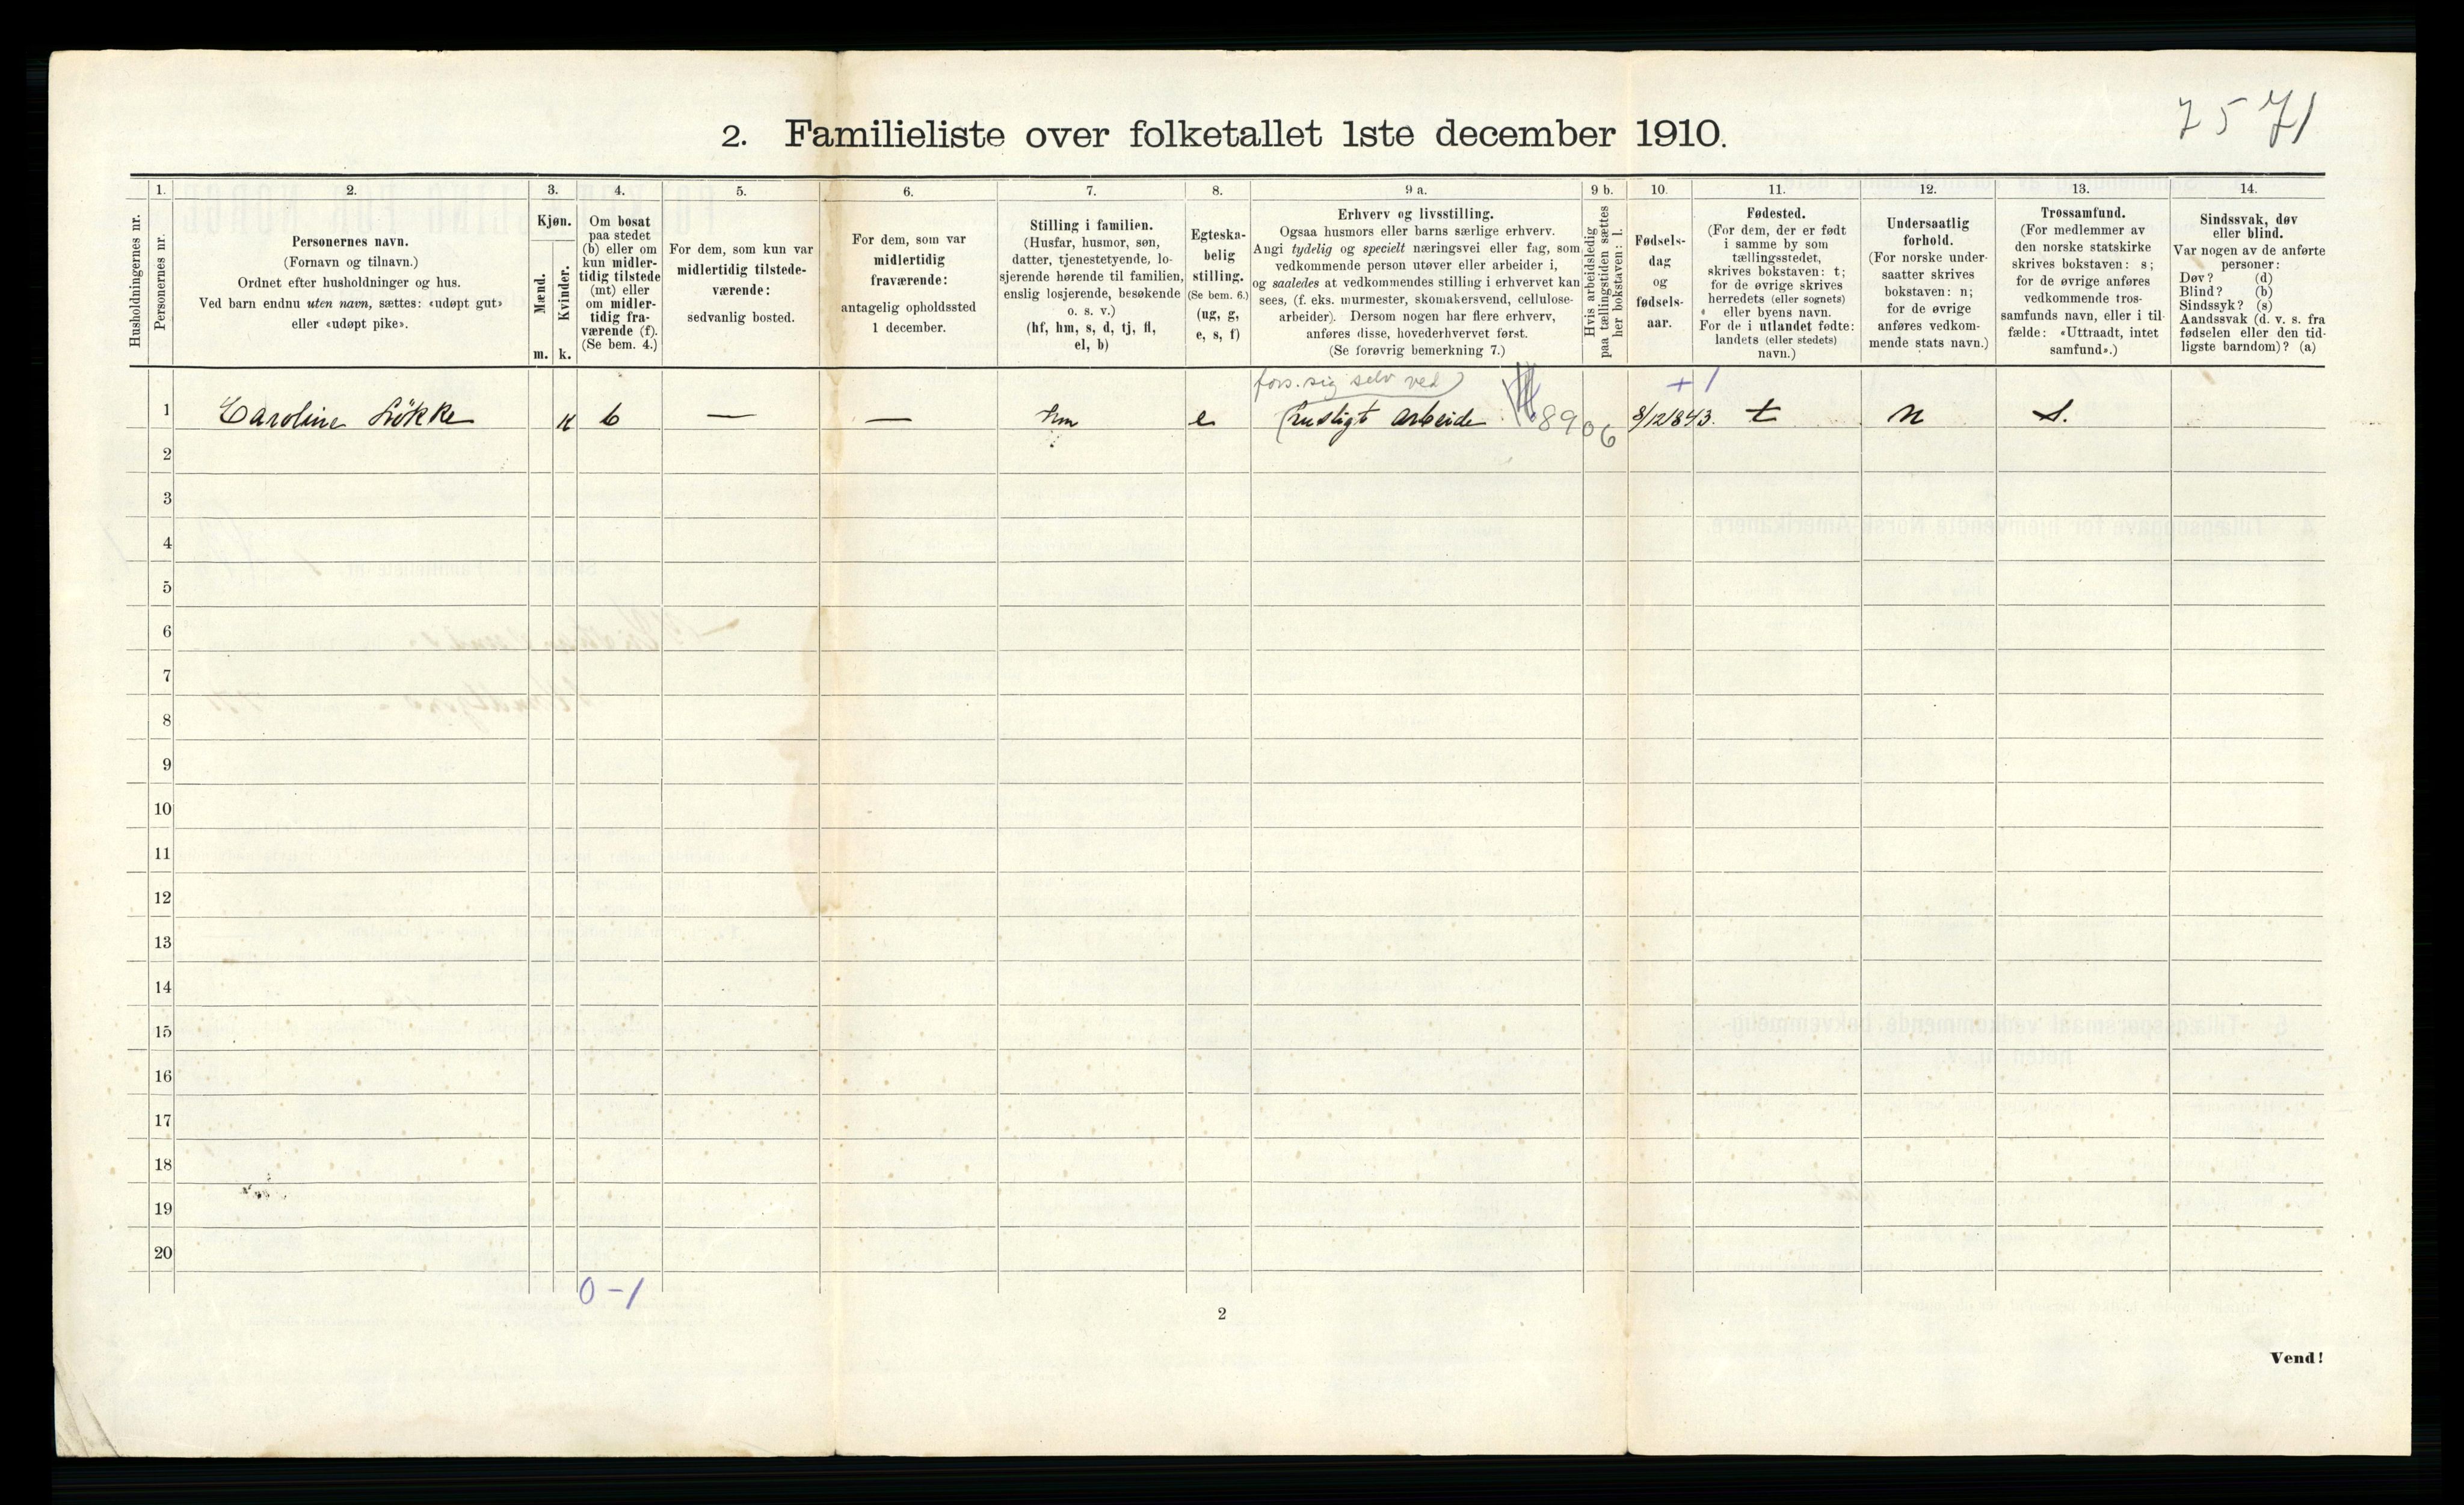 7571
2. Familieliste over folketallet 1ste december 1910.
Husholdningernes nr.
1.
Personernes nr.
2.
Personernes navn.
(Fornavn og tilnavn.)
Ordnet efter husholdninger og hus.
Ved barn endnu uten navn, sættes: «udøpt gut»
eller «udøpt pike».
3.
Kjøn.
Mænd.
m.
Kvinder.
k.
4.
Om bosat
paa stedet
(b) eller om
kun midler-
tidig tilstede
(mt) eller
om midler-
tidig fra-
værende (f).
(Se bem. 4.)
5.
For dem, som kun var
midlertidig tilstede-
værende:
sedvanlig bosted.
6.
For dem, som var
midlertidig
fraværende:
antagelig opholdssted
1 december.
7.
Stilling i familien.
(Husfar, husmor, søn,
datter, tjenestetyende, lo-
sjerende hørende til familien,
enslig losjerende, besøkende
o. s. v.)
(hf, hm, s, d, tj, fl,
el, b)
8.
Egteska-
belig
stilling.
(Se bem. 6.)
(ug, g,
e, s, f)
9 a.
Erhverv og livsstilling.
Ogsaa husmors eller barns særlige erhverv.
Angi tydelig og specielt næringsvei eller fag, som
vedkommende person utøver eller arbeider i,
og saaledes at vedkommendes stilling i erhvervet kan
sees, (f. eks. murmester, skomakersvend, cellulose-
arbeider). Dersom nogen har flere erhverv,
anføres disse, hovederhvervet først.
(Se forøvrig bemerkning 7.)
9 b.
Hvis arbeidsledig
paa tællingstiden sættes
her bokstaven: l.
10.
Fødsels-
dag
og
fødsels-
aar.
11.
Fødested.
(For dem, der er født
i samme by som
tællingsstedet,
skrives bokstaven: t;
for de øvrige skrives
herredets (eller sognets)
eller byens navn.
For de i utlandet fødte:
landets (eller stedets)
navn.)
12.
Undersaatlig
forhold.
(For norske under-
saatter skrives
bokstaven: n;
for de øvrige
anføres vedkom-
mende stats navn.)
13.
Trossamfund.
(For medlemmer av
den norske statskirke
skrives bokstaven: s;
for de øvrige anføres
vedkommende tros-
samfunds navn, eller i til-
fælde: «Uttraadt, intet
samfund».)
14.
Sindssvak, døv
eller blind.
Var nogen av de anførte
personer:
Døv? (d)
Blind? (b)
Sindssyk? (s)
Aandssvak (d. v. s. fra
fødselen eller den tid-
ligste barndom)? (a)
fors. sig selv ved + 1
1 Caroline Løkke k b — — hm e husligt arbeide 8906 8/12 1843. t n s.
2
3
4
5
6
7
8
9
10
11
12
13
14
15
16
17
18
19
20
0 - 1
2
Vend!